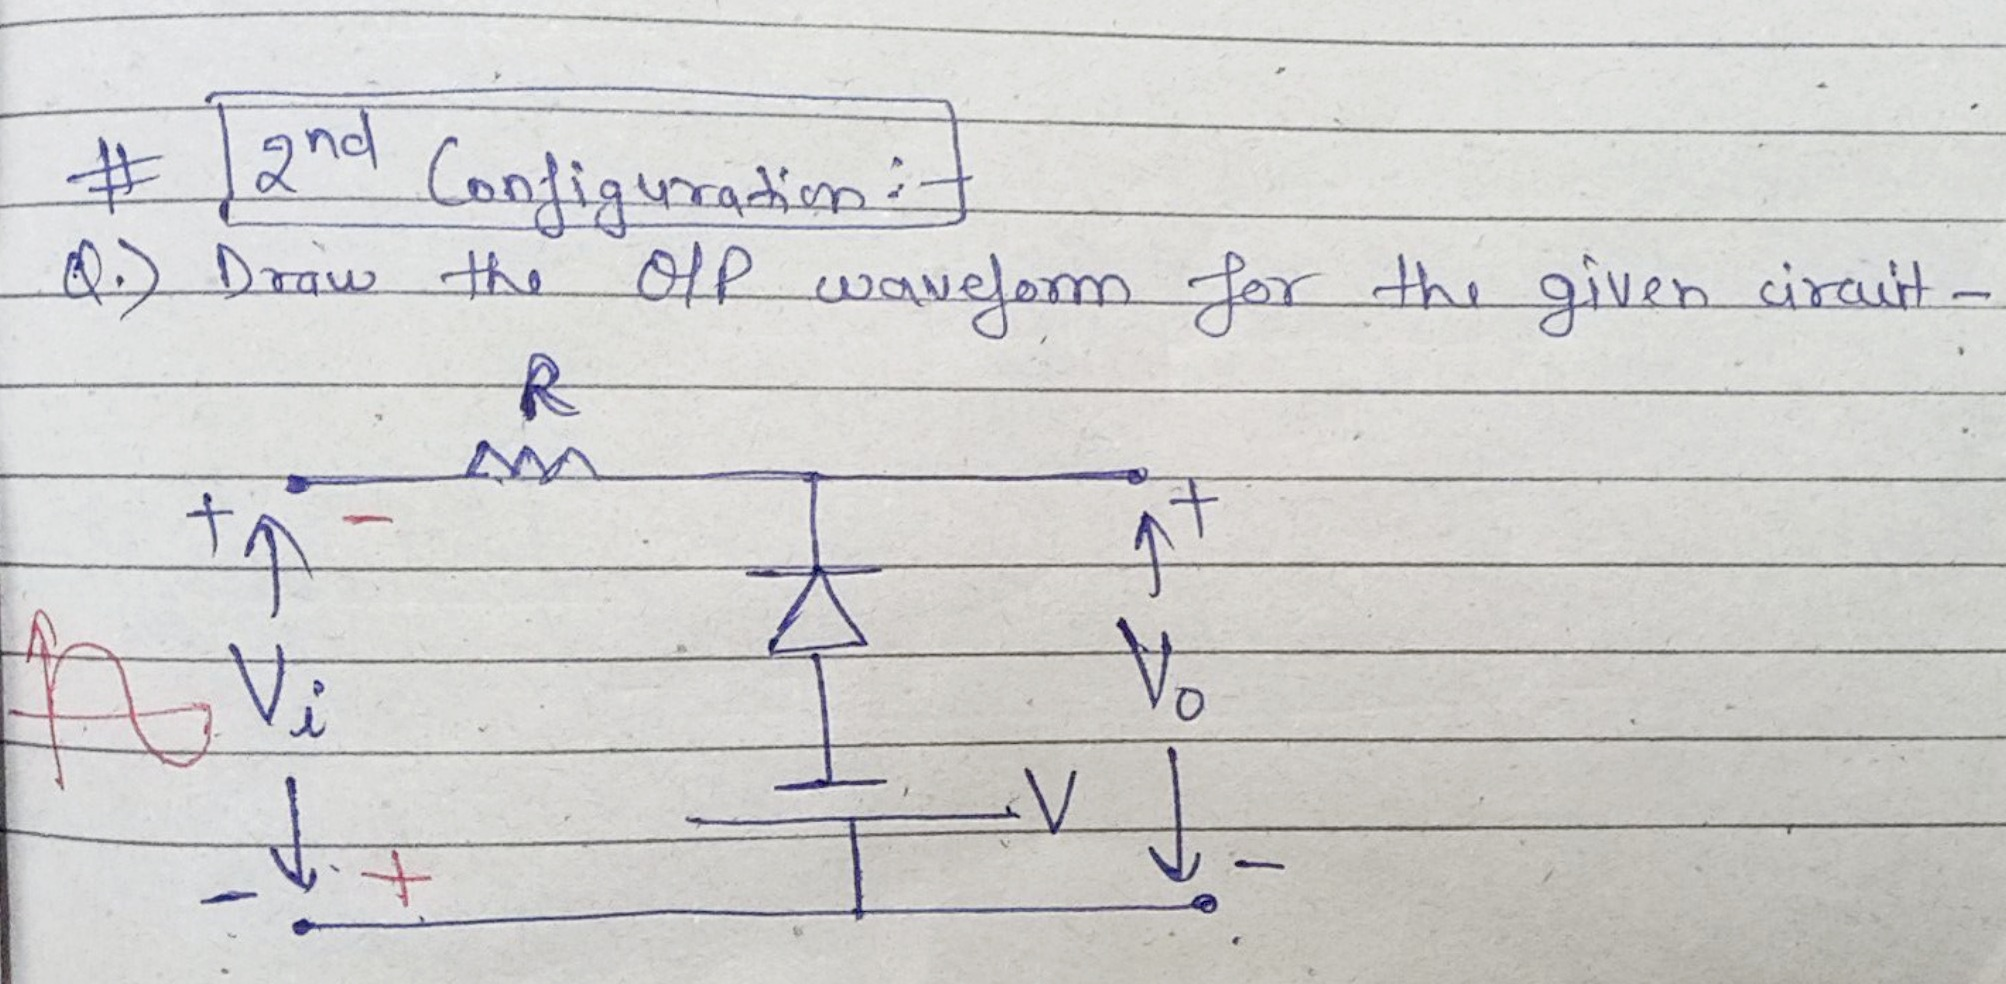 # 2nd Configuration :-
Q.) Draw the O/P waveform for the given circuit -
R
+ - +
Vi Vo
V
- + -